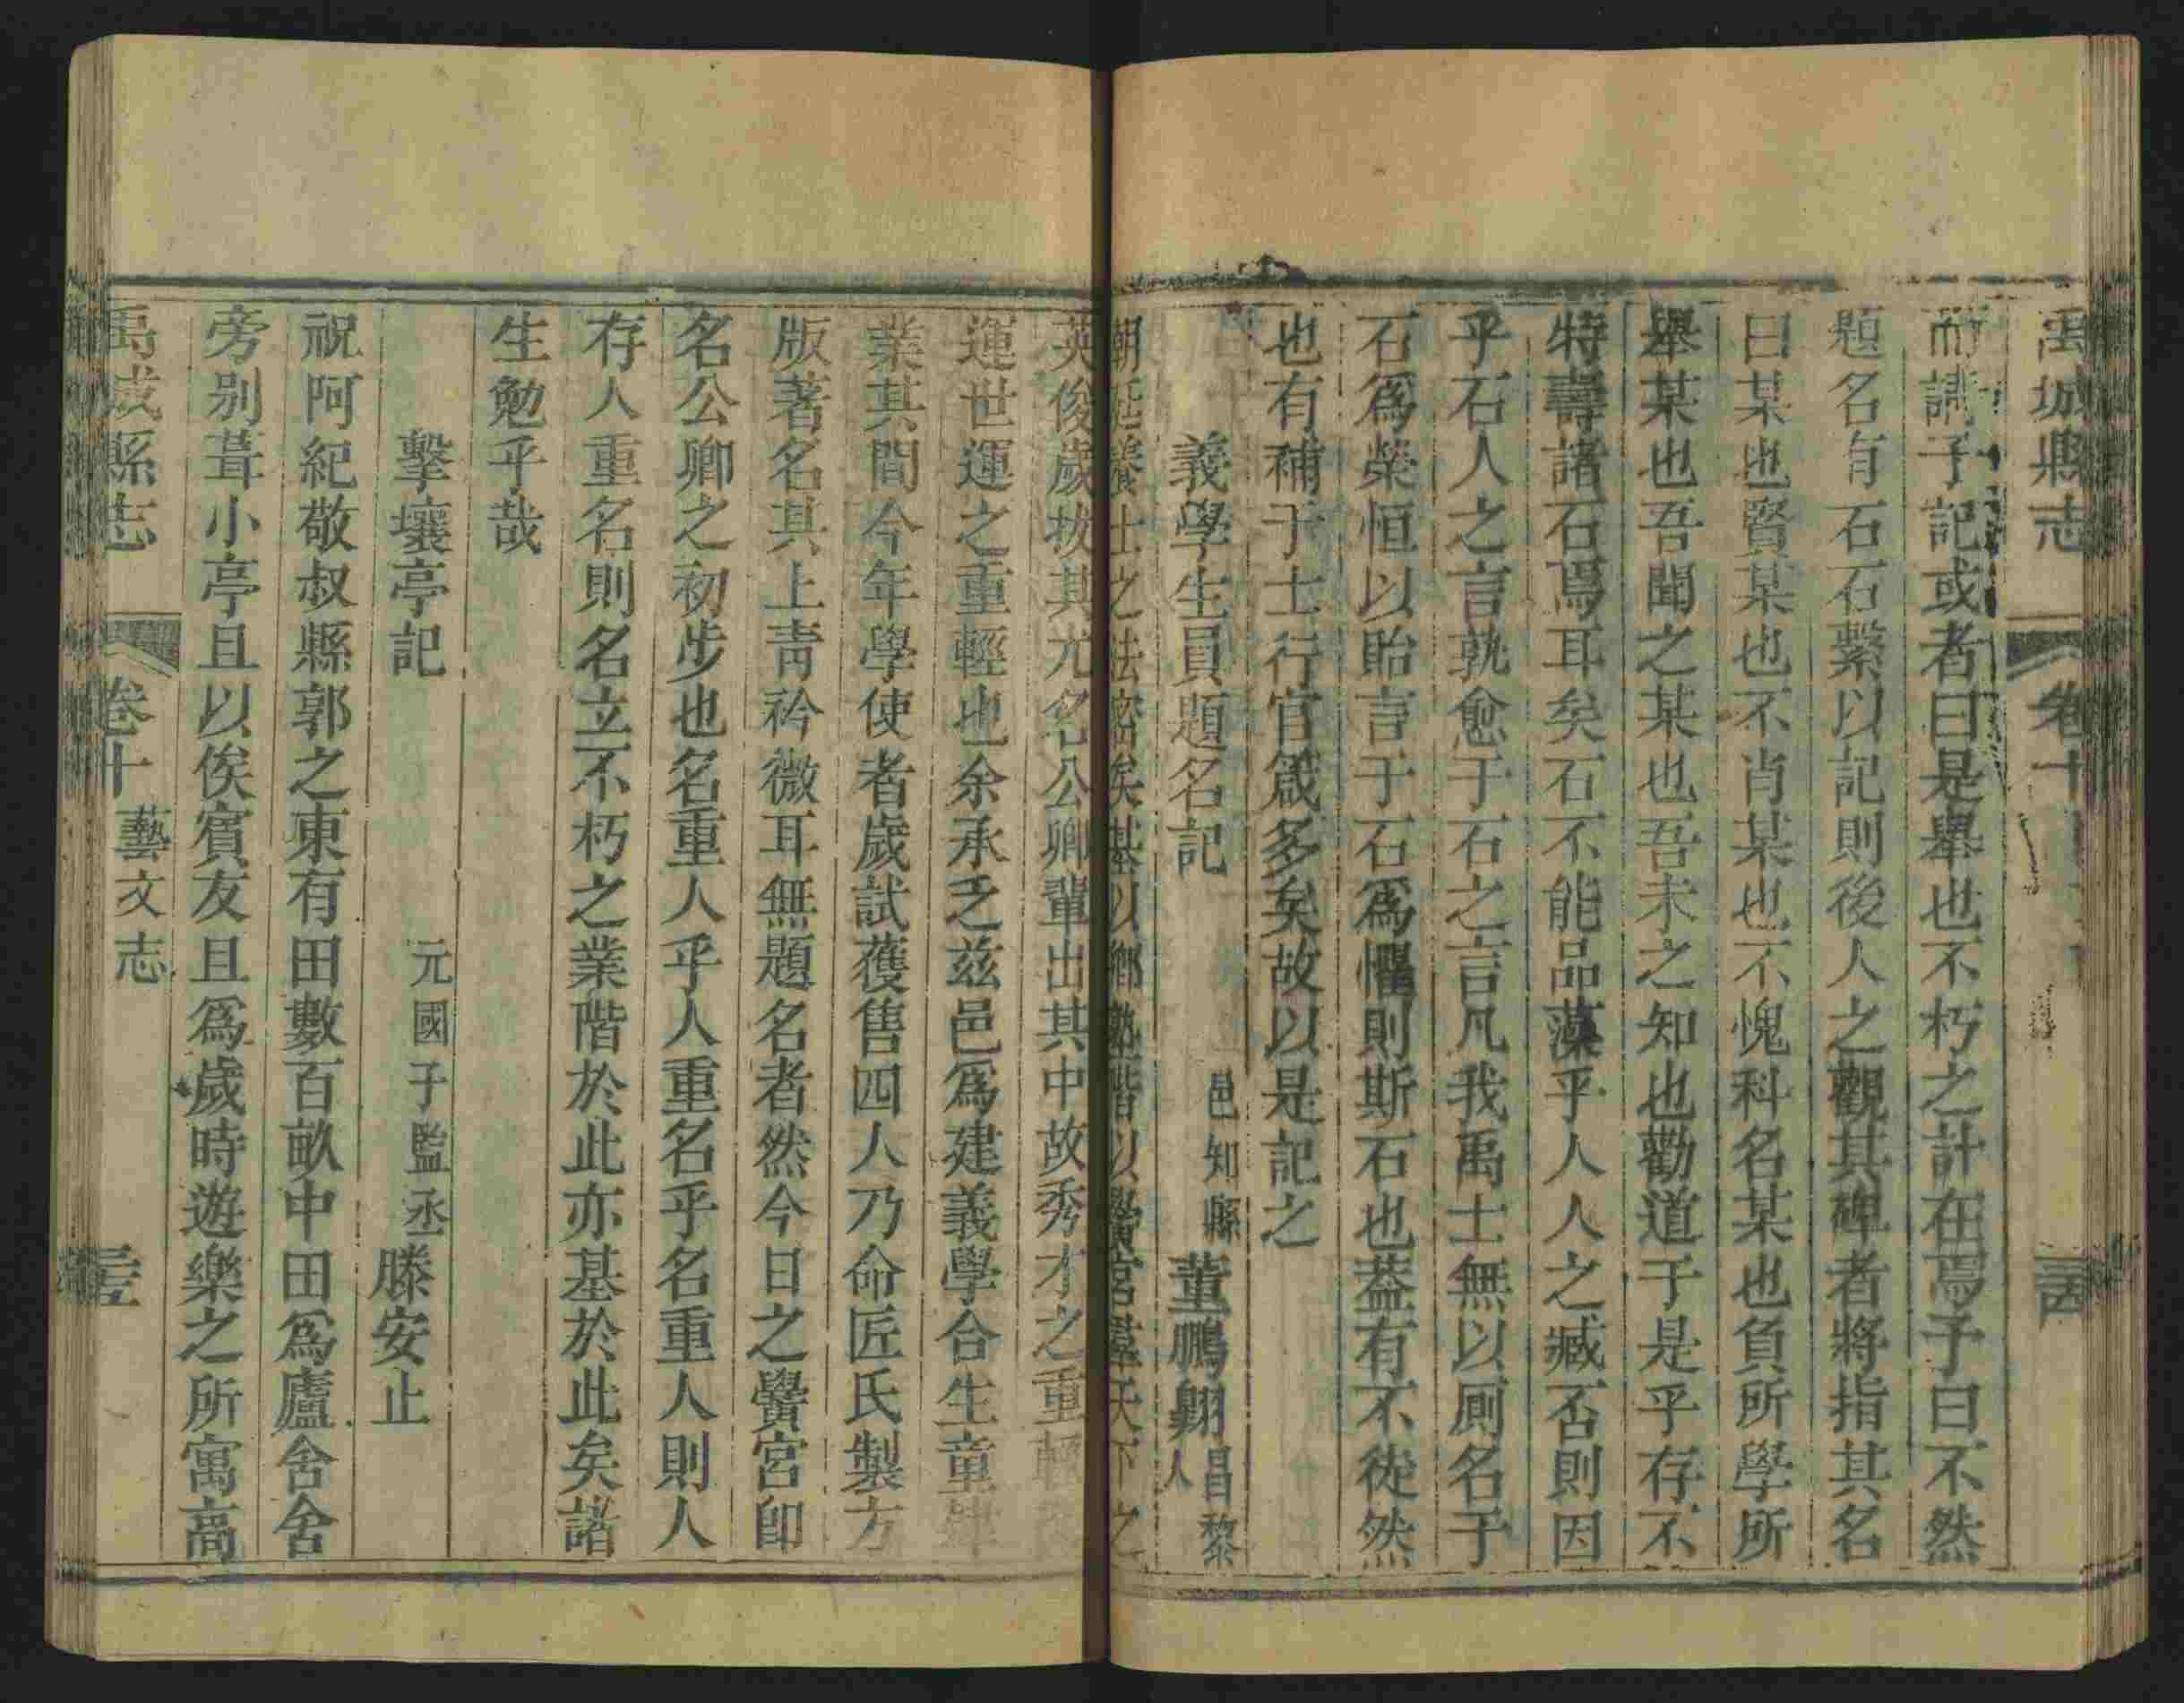 禹城縣志 卷十
而請予記或者曰是舉也不朽之計在焉予曰不然
題名有石石繫以記則後人之觀其碑者將指其名
曰某也賢某也不肖某也不愧科名某也負所學所
舉某也吾聞之某也吾未之知也勸道于是乎存不
特壽諸石焉耳矣石不能品藻乎人人之臧否則因
乎石人之言孰愈于石之言凡我禹士無以厠名于
石爲榮恒以貽言于石爲懼則斯石也葢有不徒然
也有補于士行官箴多矣故以是記之
義學生員題名記 邑知縣董鵬翺昌黎人
朝廷養士之法密矣基以鄉塾階以黌宮羣天下之
英俊歲拔其尤名公卿輩出其中故秀才之重輕
運世運之重輕也余承乏兹邑爲建義學合生童肄
業其間今年學使者歲試獲售四人乃命匠氏製方
版著名其上靑衿微耳無題名者然今日之黌宮卽
名公卿之初步也名重人乎人重名乎名重人則人
存人重名則名立不朽之業階於此亦基於此矣諸
生勉乎哉
擊壤亭記 元國子監丞滕安止
祝阿紀敬叔縣郭之東有田數百畝中田爲廬舍舍
旁别葺小亭且以俟賓友且爲歲時遊樂之所寓高
禹城縣志 卷十 藝文志